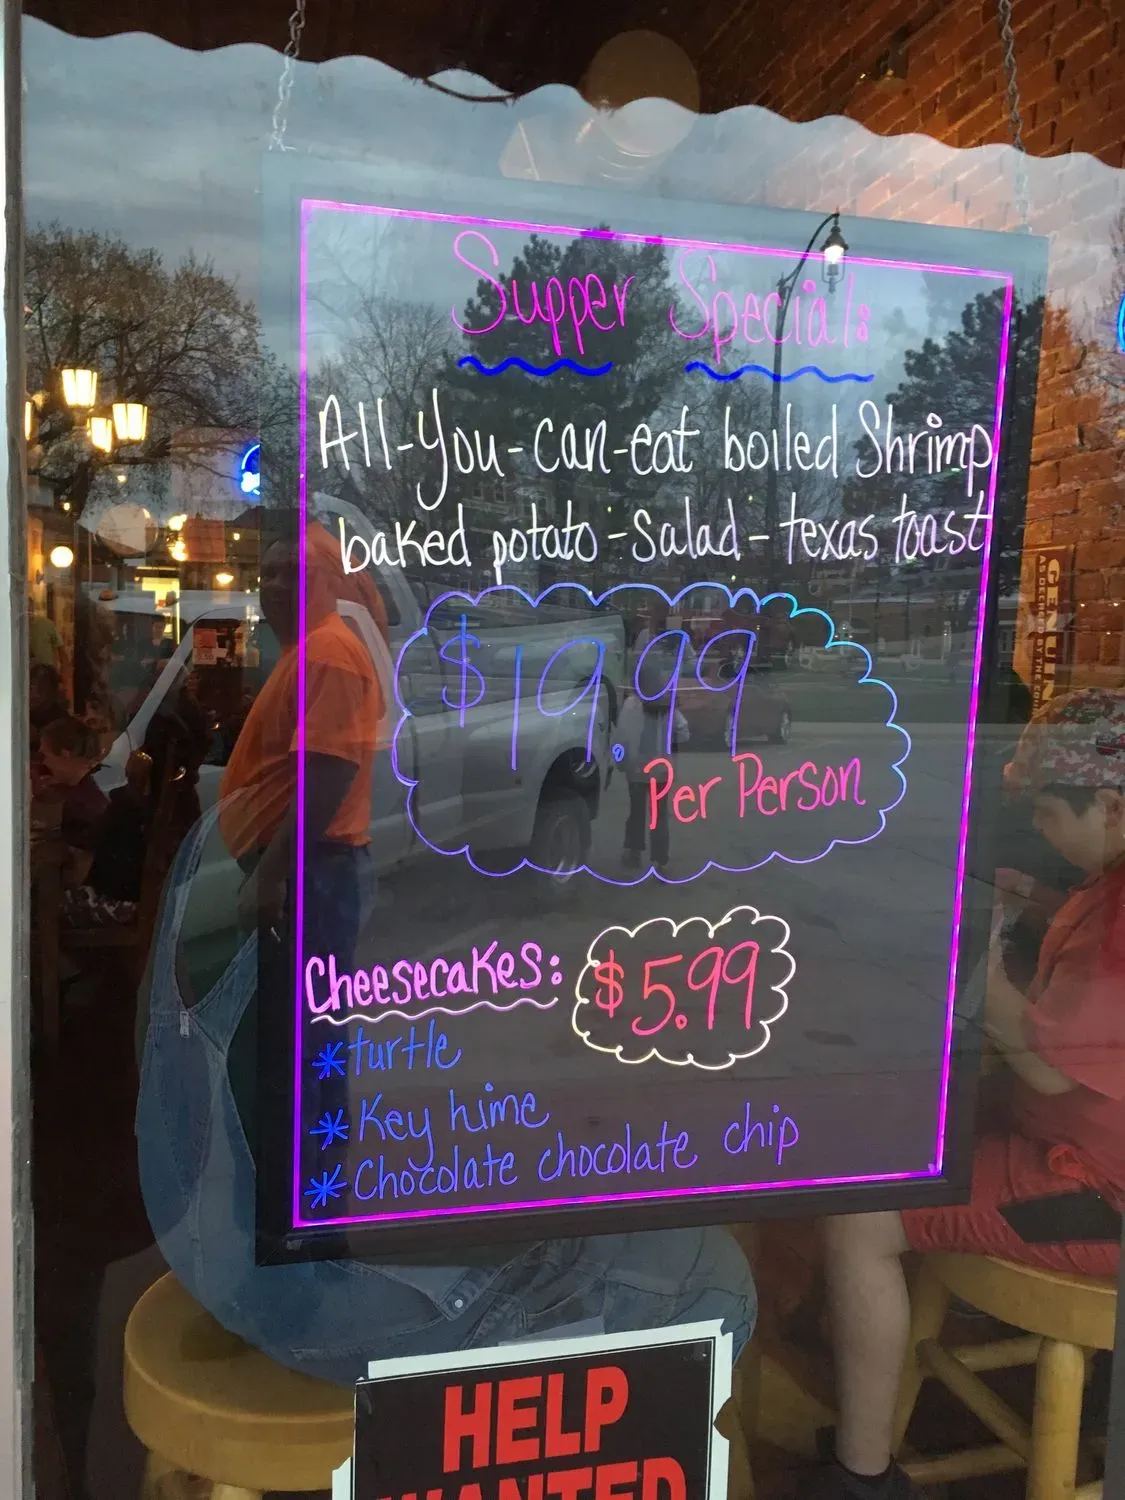 Supper Special:
All-You-can-eat boiled Shrimp
baked potato - Salad - texas toast
$19.99
Per Person
Cheesecakes: $5.99
*turtle
*Key hime
*Chocolate chocolate chip
HELP
WANTED
GENUIN